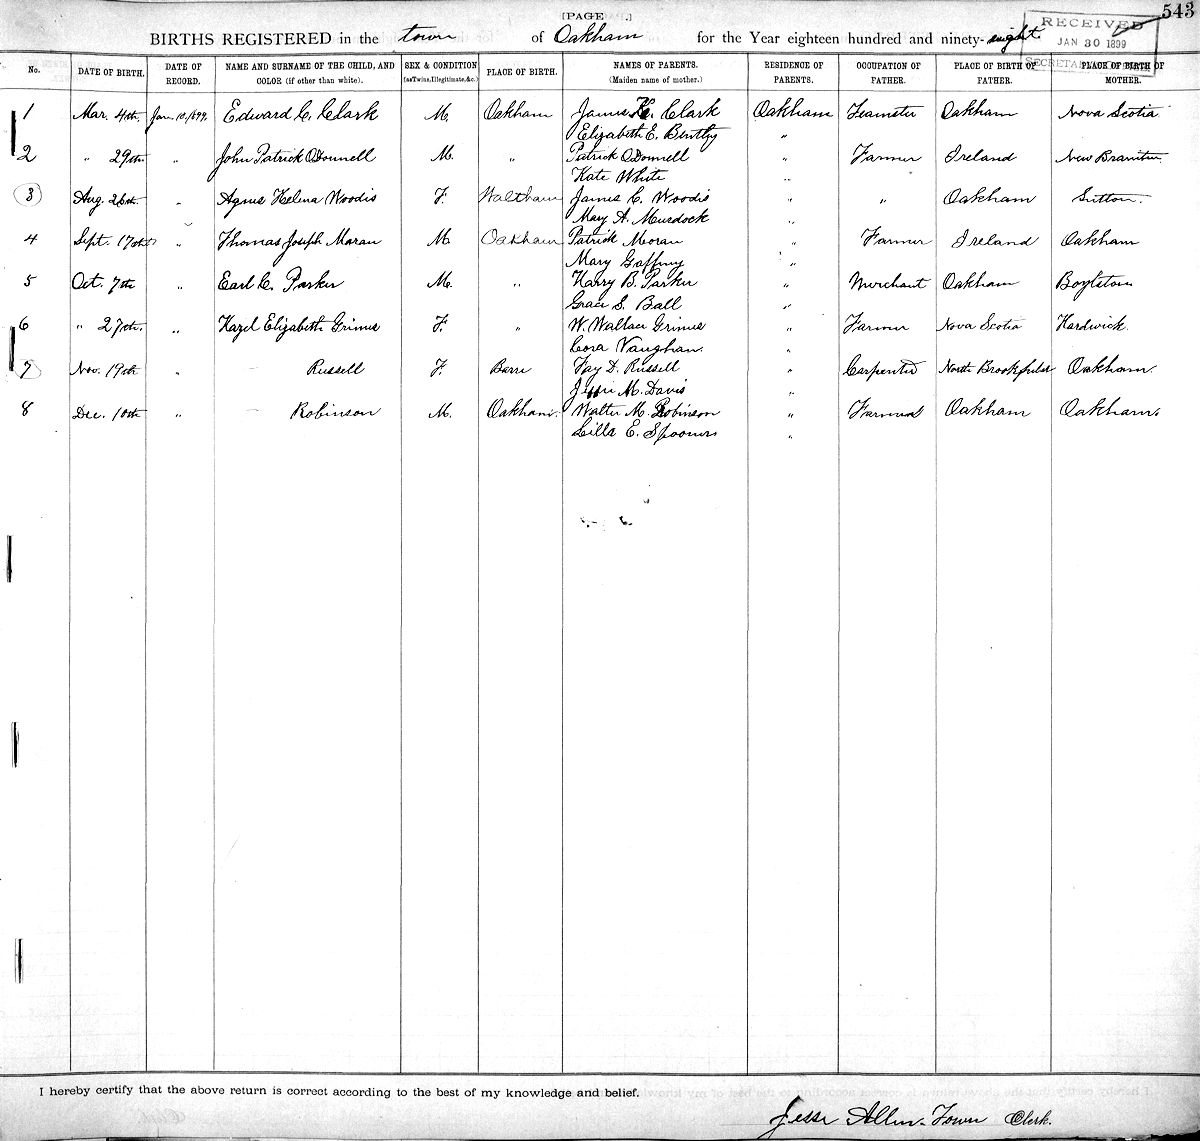 543
[PAGE .]
RECEIVED
JAN 30 1899
BIRTHS REGISTERED in the town of Oakham for the Year eighteen hundred and ninety-eight.
No. DATE OF BIRTH. DATE OF RECORD. NAME AND SURNAME OF THE CHILD, AND COLOR (if other than white). SEX & CONDITION (as Twins, Illegitimate, &c.) PLACE OF BIRTH. NAMES OF PARENTS. (Maiden name of mother.) RESIDENCE OF PARENTS. OCCUPATION OF FATHER. PLACE OF BIRTH OF FATHER. PLACE OF BIRTH OF MOTHER.
1 Mar. 4th. Jan. 10, 1899. Edward C. Clark M. Oakham James K. Clark Oakham Teamster Oakham Nova Scotia
Elizabeth E. Bentley "
2 " 29th " John Patrick O'Donnell M. " Patrick O'Donnell " Farmer Ireland New Braintree
Kate White "
3 Aug. 26th " Agnes Helena Woodis F. Waltham James C. Woodis " " Oakham Sutton.
Mary A. Murdock "
4 Sept. 17th " Thomas Joseph Moran M. Oakham Patrick Moran " Farmer Ireland Oakham
Mary Gaffney "
5 Oct. 7th " Earl C. Parker M. " Harry B. Parker " Merchant Oakham Boylston
Grace S. Ball "
6 " 27th. " Hazel Elizabeth Grimes F. " W. Wallace Grimes " Farmer Nova Scotia Hardwick.
Cora Vaughan. "
7 Nov. 19th " — Russell F. Barre Fay D. Russell " Carpenter North Brookfield Oakham.
Jessie M. Davis "
8 Dec. 10th " — Robinson M. Oakham. Walter M. Robinson " Farmer Oakham Oakham.
Lilla E. Spooner "
I hereby certify that the above return is correct according to the best of my knowledge and belief.
Jesse Allen. Town Clerk.